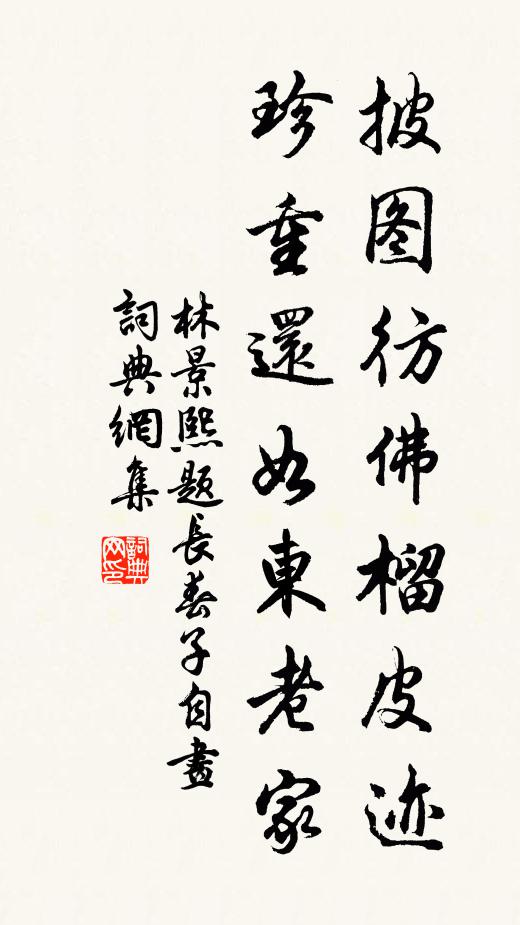 披图彷佛榴皮迹
珍重還如東老家
林景熙题長春子自畫
詞典網集
詞典網印